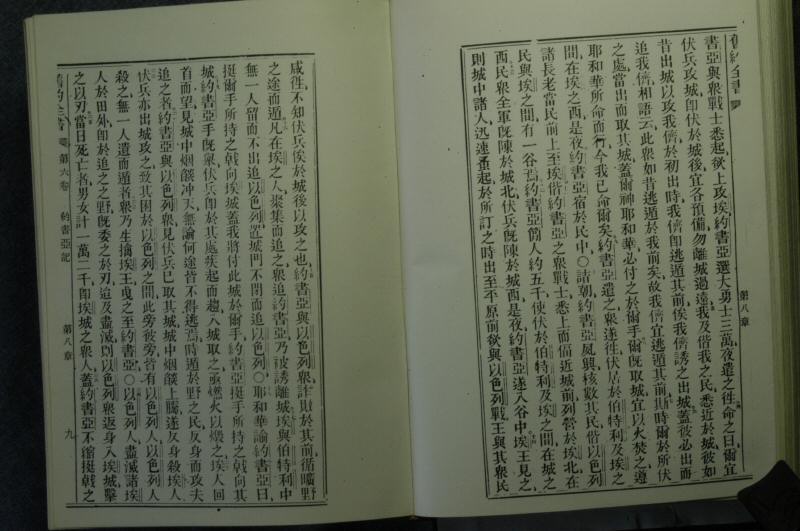 舊約全書
第八章
書亞與衆戰士悉起欲上攻埃約書亞選大勇士三萬夜遣之往命之曰爾宜
伏兵攻城卽伏於城後宜各預備勿離城過遠我及偕我之民悉近於城彼如
昔出城以攻我儕於初出時我儕卽逃遁其前俟我儕誘之出城蓋彼必出而
追我儕相語云此衆如昔逃遁於我前矣故我儕宜逃遁其前斯時爾於所伏
之處當出而取其城蓋爾神耶和華必付之於爾手爾旣取城宜以火焚之遵
耶和華所命而行今我已命爾矣約書亞遣之衆遂往伏居於伯特利及埃之
間在埃之西是夜約書亞宿於民中○詰朝約書亞夙興核數其民偕以色列
諸長老當民前上至埃偕約書亞之衆戰士悉上而偪近城前列營於埃北在
民與埃之間有一谷焉約書亞簡人約五千使伏於伯特利及埃之間在城之
西民衆全軍旣陳於城北伏兵旣陳於城西是夜約書亞遂入谷中埃王見之
則城中諸人迅速蚤起於所訂之時出至平原前欲與以色列戰王與其衆民
咸往不知伏兵俟於城後以攻之也約書亞與以色列衆詐敗於其前循曠野
之途而遁凡在埃之人衆集而追之衆追約書亞乃被誘離城埃與伯特利中
無一人留而不出追以色列置城門不閉而追以色列○耶和華諭約書亞曰
挺爾手所持之戟向埃城蓋我將付此城於爾手約書亞挺手所持之戟向其
城約書亞手旣舉伏兵卽於其處疾起而趨入城取之亟燃火以燬之埃人回
首而望見城中烟燄冲天無論何途皆不得逃焉時遁於野之民反身而攻夫
追之者約書亞與以色列衆見伏兵已取其城城中烟燄上騰遂反身殺埃人
伏兵亦出城攻之致其困於以色列之間此旁彼旁皆有以色列人以色列人
殺之無一人遺而遁者衆乃生擒埃王曳之至約書亞○以色列人盡滅諸埃
人於田外卽於追之之野旣委之於刃追及盡滅則以色列衆返身入埃城擊
之以刃當日死亡者男女計一萬二千卽埃城之衆人蓋約書亞不縮挺戟之
舊約全書 第六卷 約書亞記 第八章 九